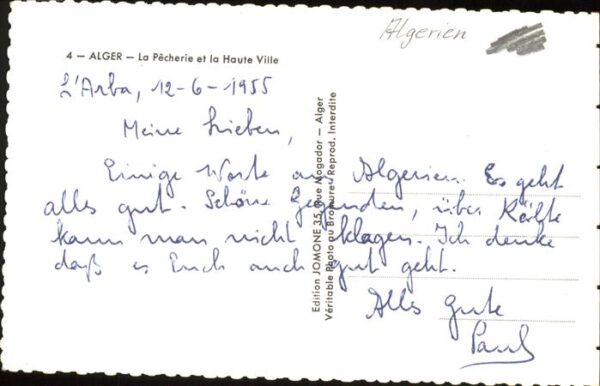 Algerien
4 — ALGER — La Pêcherie et la Haute Ville
L'Arba, 12-6-1955
Meine Lieben,
Einige Worte aus Algerien. Es geht
alles gut. Schöne Gegenden, über Kälte
kann man nicht klagen. Ich denke
daß es Euch auch gut geht.
Alles Gute
Paul
Edition JOMONE 35, Rue Mogador — Alger
Véritable Photo au Bromure. Reprod. Interdite